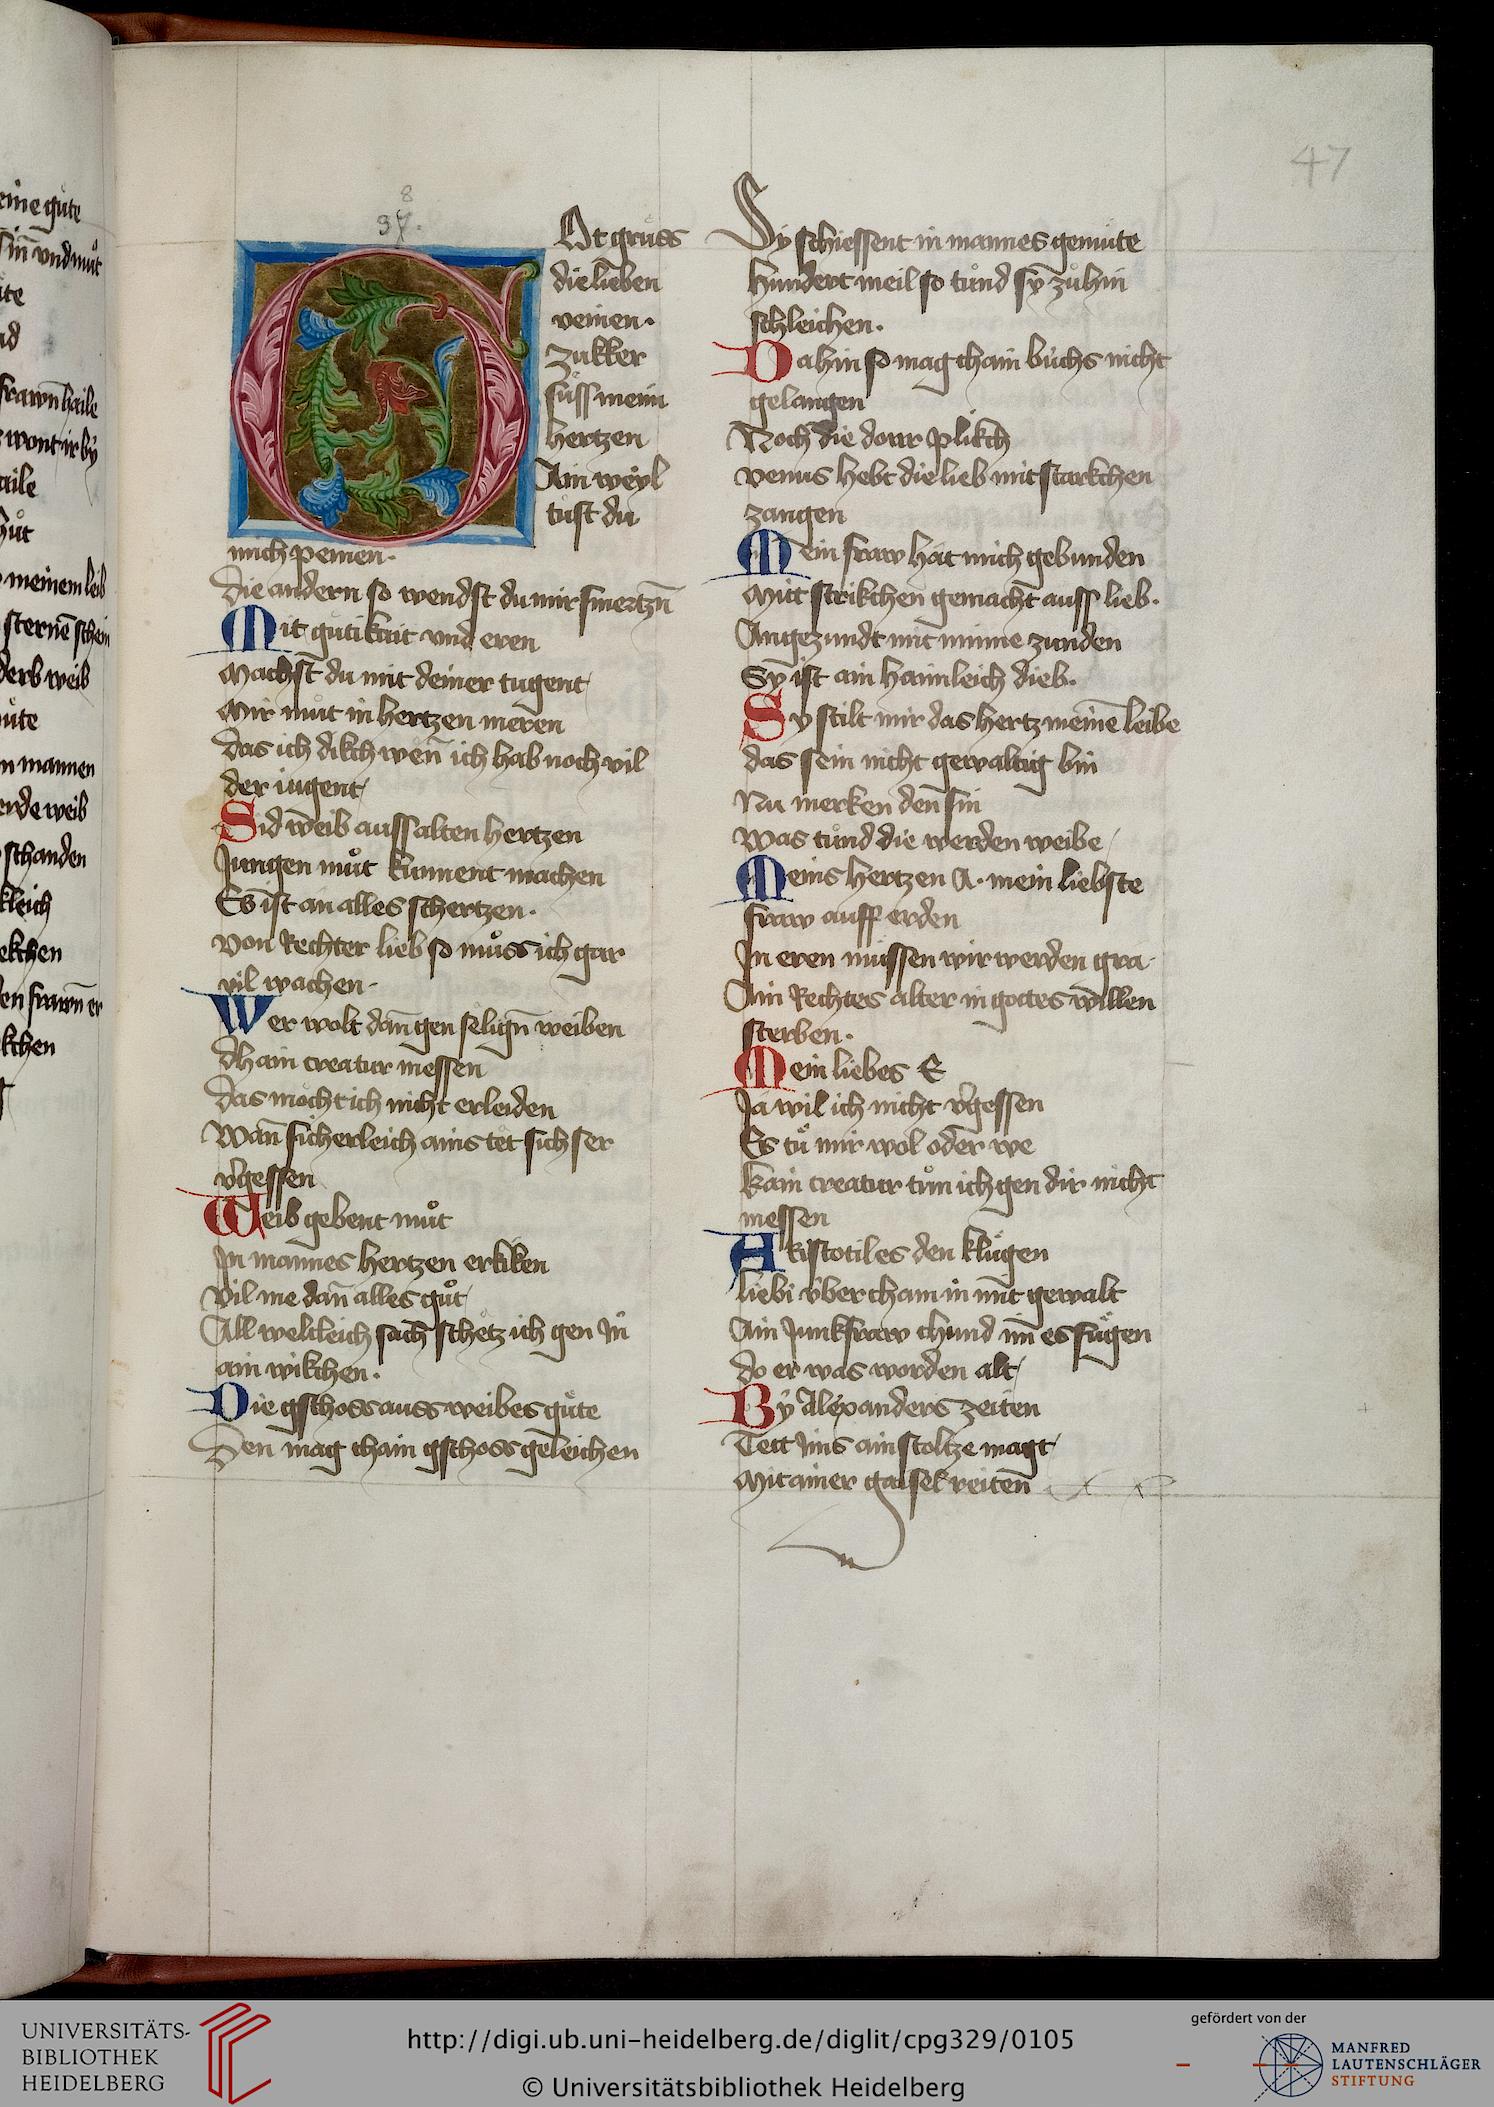 eine güte
sin̄ vnd můt
ite
nd
frawn haile
wont ir by
aile
hůt
meinem leib
sterne schein
derb weib
güte
n mannen
erde weib
schanden
kleich
ekchen
en frawn̄ er
kchen
47
8
37.
Ot grüss
die lieben
veinen.
Zukker
süss meim
hertzen
Ain weyl
tust du
mich peinen.
Die andern so wendst du mir smertzn̄
Mit gütikait vnd eren
Machst du mit deiner tugent
Mir můt in hertzen meren
Das ich dikch wen̄ ich hab noch vil
der iugent
Sid weib auss alten hertzen
Jungen můt kunnent machen
Es ist an alles schertzen.
Von Rechter lieb so můss ich gar
vil wachen.
Wer wolt dan̄ gen selign̄ weiben
dhain creatur messen
Das möcht ich nicht erleiden
Wan̄ sicherleich ains tët sich ser
v̓gessen
Weib gebent můt
In mannes hertzen erkiken
Vil me dan̄ alles gůt
All weltleich sach schetz ich gen In̄
ain wikchen.
Die gschoss auss weibes güte
Den mag chain gschoss geleichen
Sy schiessent in mannes gemüte
Hundert meil so tůnd sy zůhin
schleichen.
Dahin so mag chain büchs nicht
gelangen
Noch die donr plikch
Venus hebt die lieb mit starkchen
zangen
Mein fraw hat mich gebunden
Mitt strikchen gemacht auss lieb.
Angezundt mit minne zunden
Sy ist ain haimleich dieb.
Sy stilt mir das hertz meine͂ leibe
das sein nicht gewaltig bin
Nu merken den sin
Was tůnd die werden weibe
Meins hertzen A. mein liebste
fraw auff erden
In eren müssen wir werden gra
Ain Rechtes alter in gottes willen
sterben.
Mein liebes E
Ja wil ich nicht v̓gessen
Es tů mir wol oder we
kain creatur tůn ich gen dir nicht
messen
Aristotiles den klügen
liebi über cham in mit gewalt
Ain Junkfraw chund im̄ es fügen
do er was worden alt
By Alexanders zeiten
Tett Jms ain stoltze magt
Mit ainer gaisel reiten
UNIVERSITÄTS-
BIBLIOTHEK
HEIDELBERG
http://digi.ub.uni-heidelberg.de/diglit/cpg329/0105
© Universitätsbibliothek Heidelberg
gefördert von der
MANFRED
LAUTENSCHLÄGER
STIFTUNG